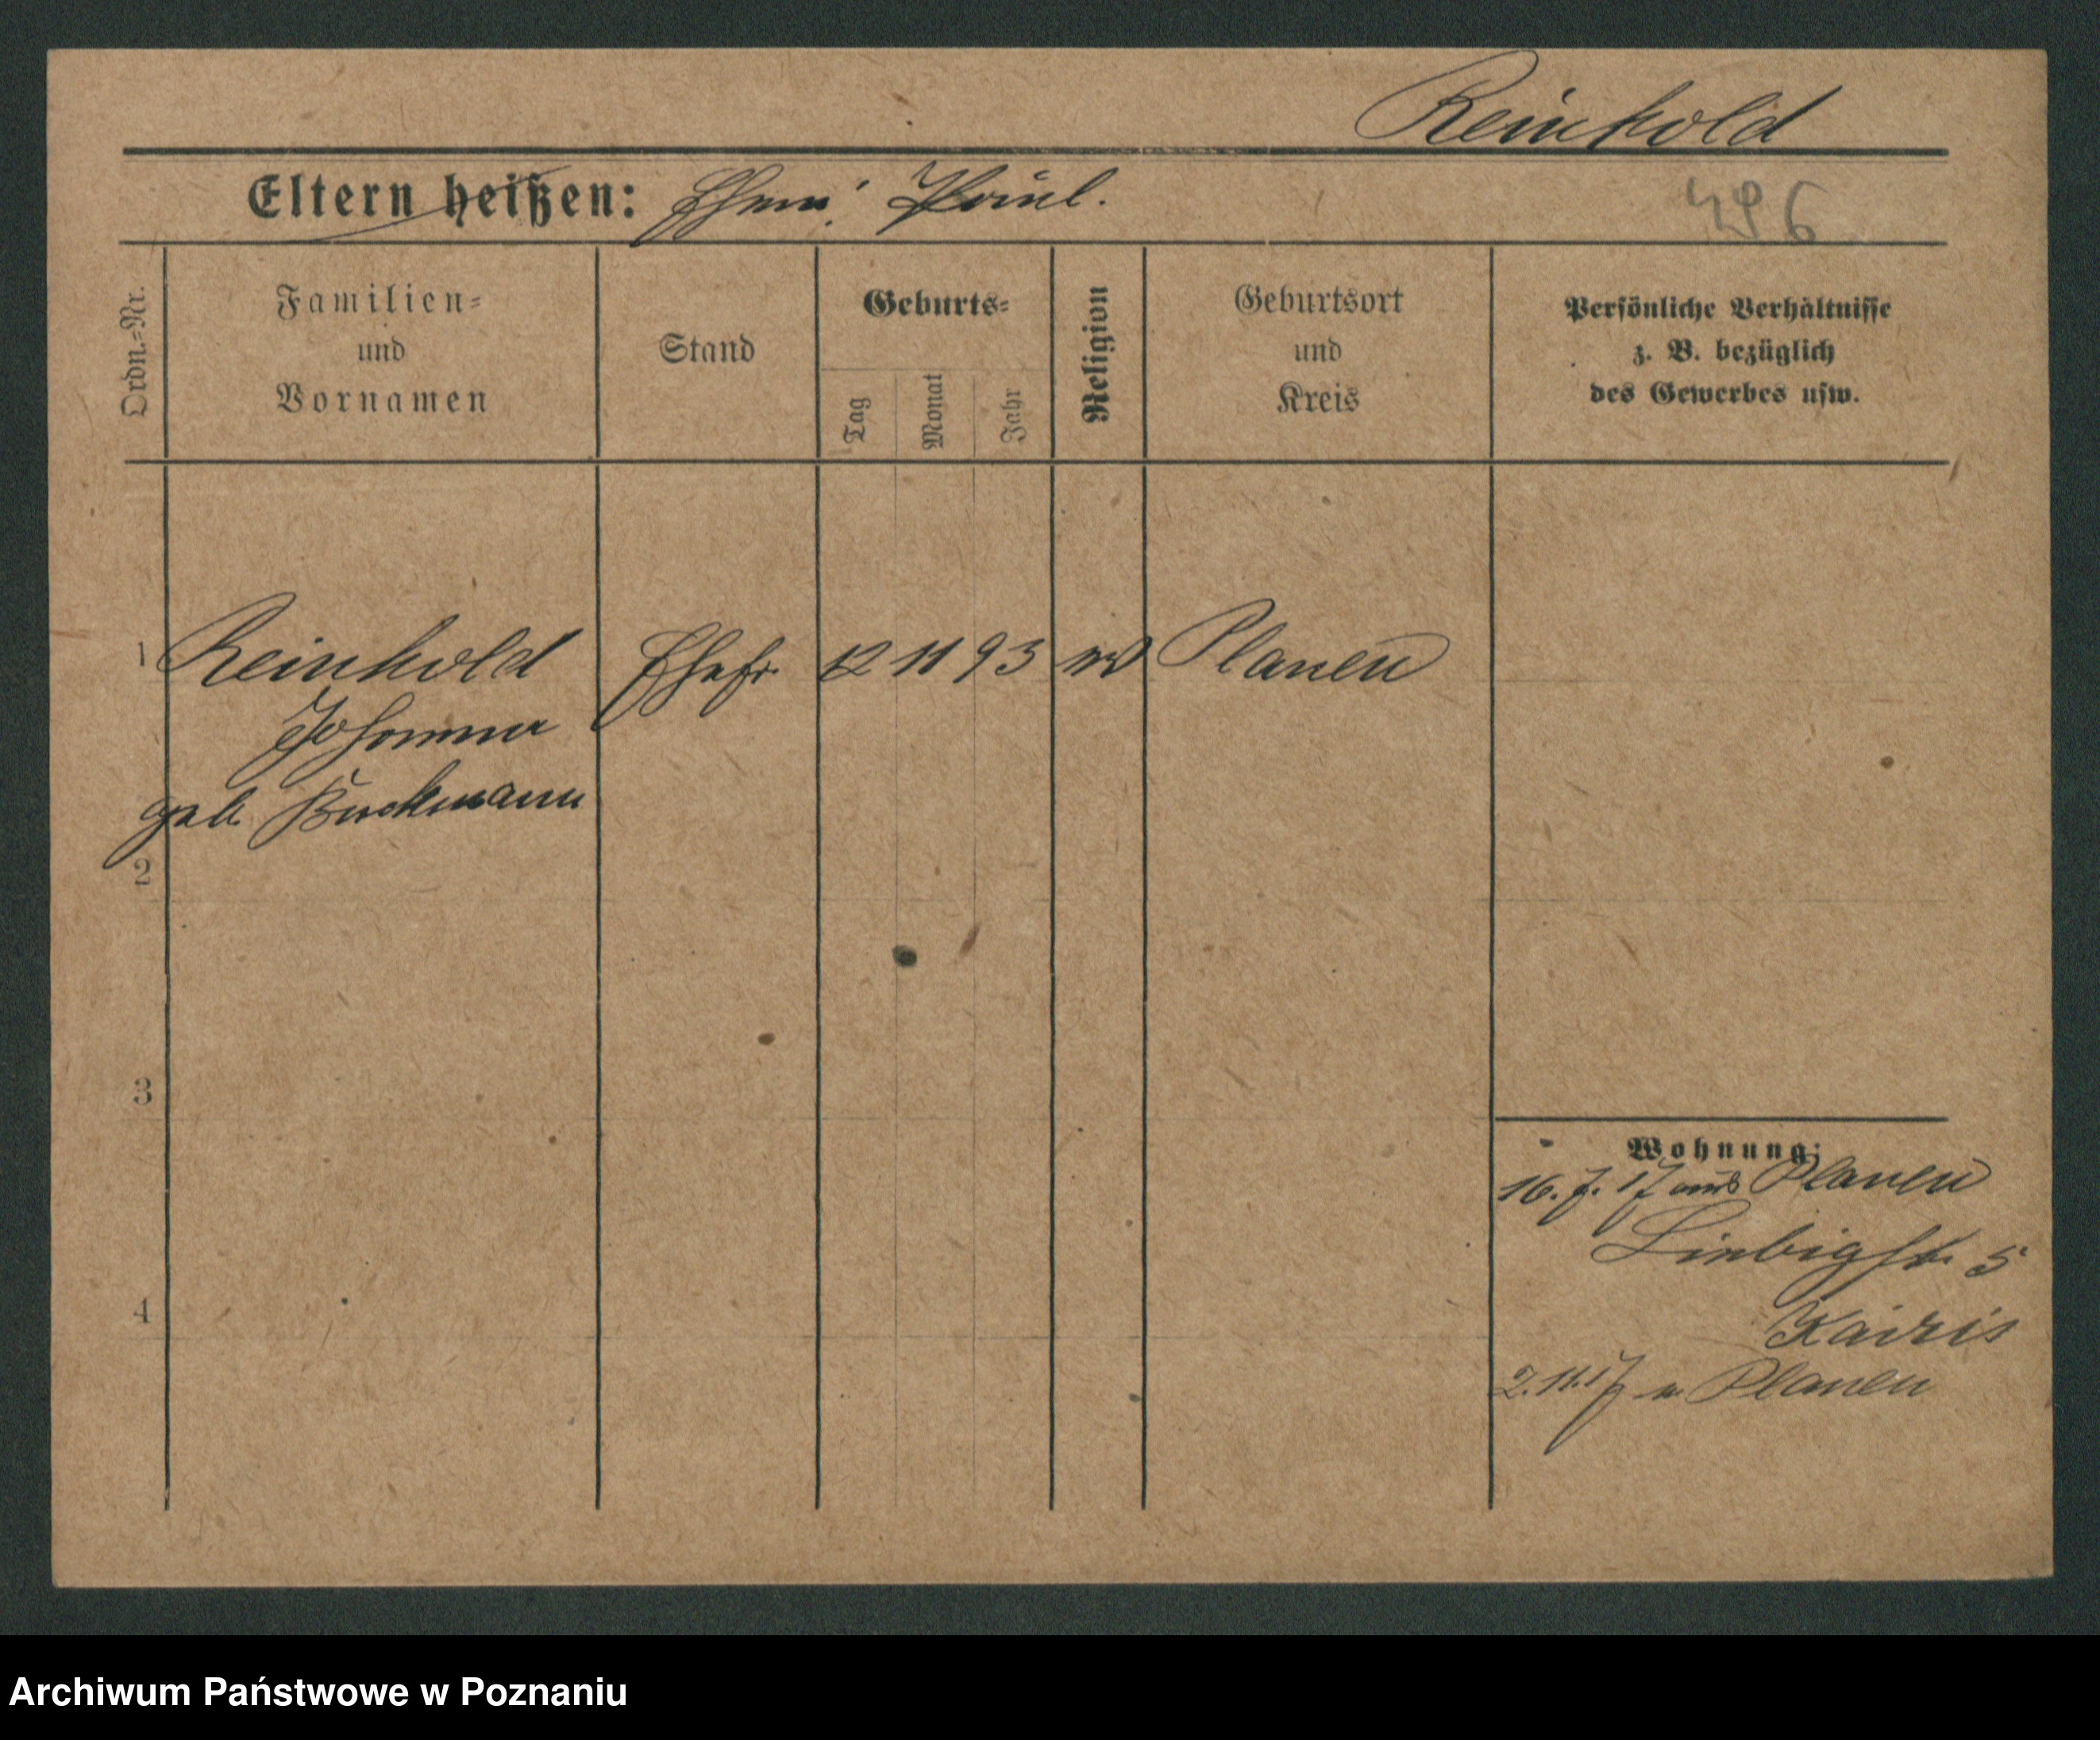 Reinhold
Eltern heißen: Ehem: Paul.
496
Ordn.-Nr.
Familien-
und
Vornamen
Stand
Geburts-
Tag
Monat
Jahr
Religion
Geburtsort
und
Kreis
Persönliche Verhältnisse
z. B. bezüglich
des Gewerbes usw.
1 Reinhold Ehefr. 12 11 93 Plauen
Johanna
geb. Buckmann
2
3
4
Wohnung:
16. 7. 17 aus Plauen
Liebigstr. 5
Kairis
2. 11. 17 n. Plauen
Archiwum Państwowe w Poznaniu